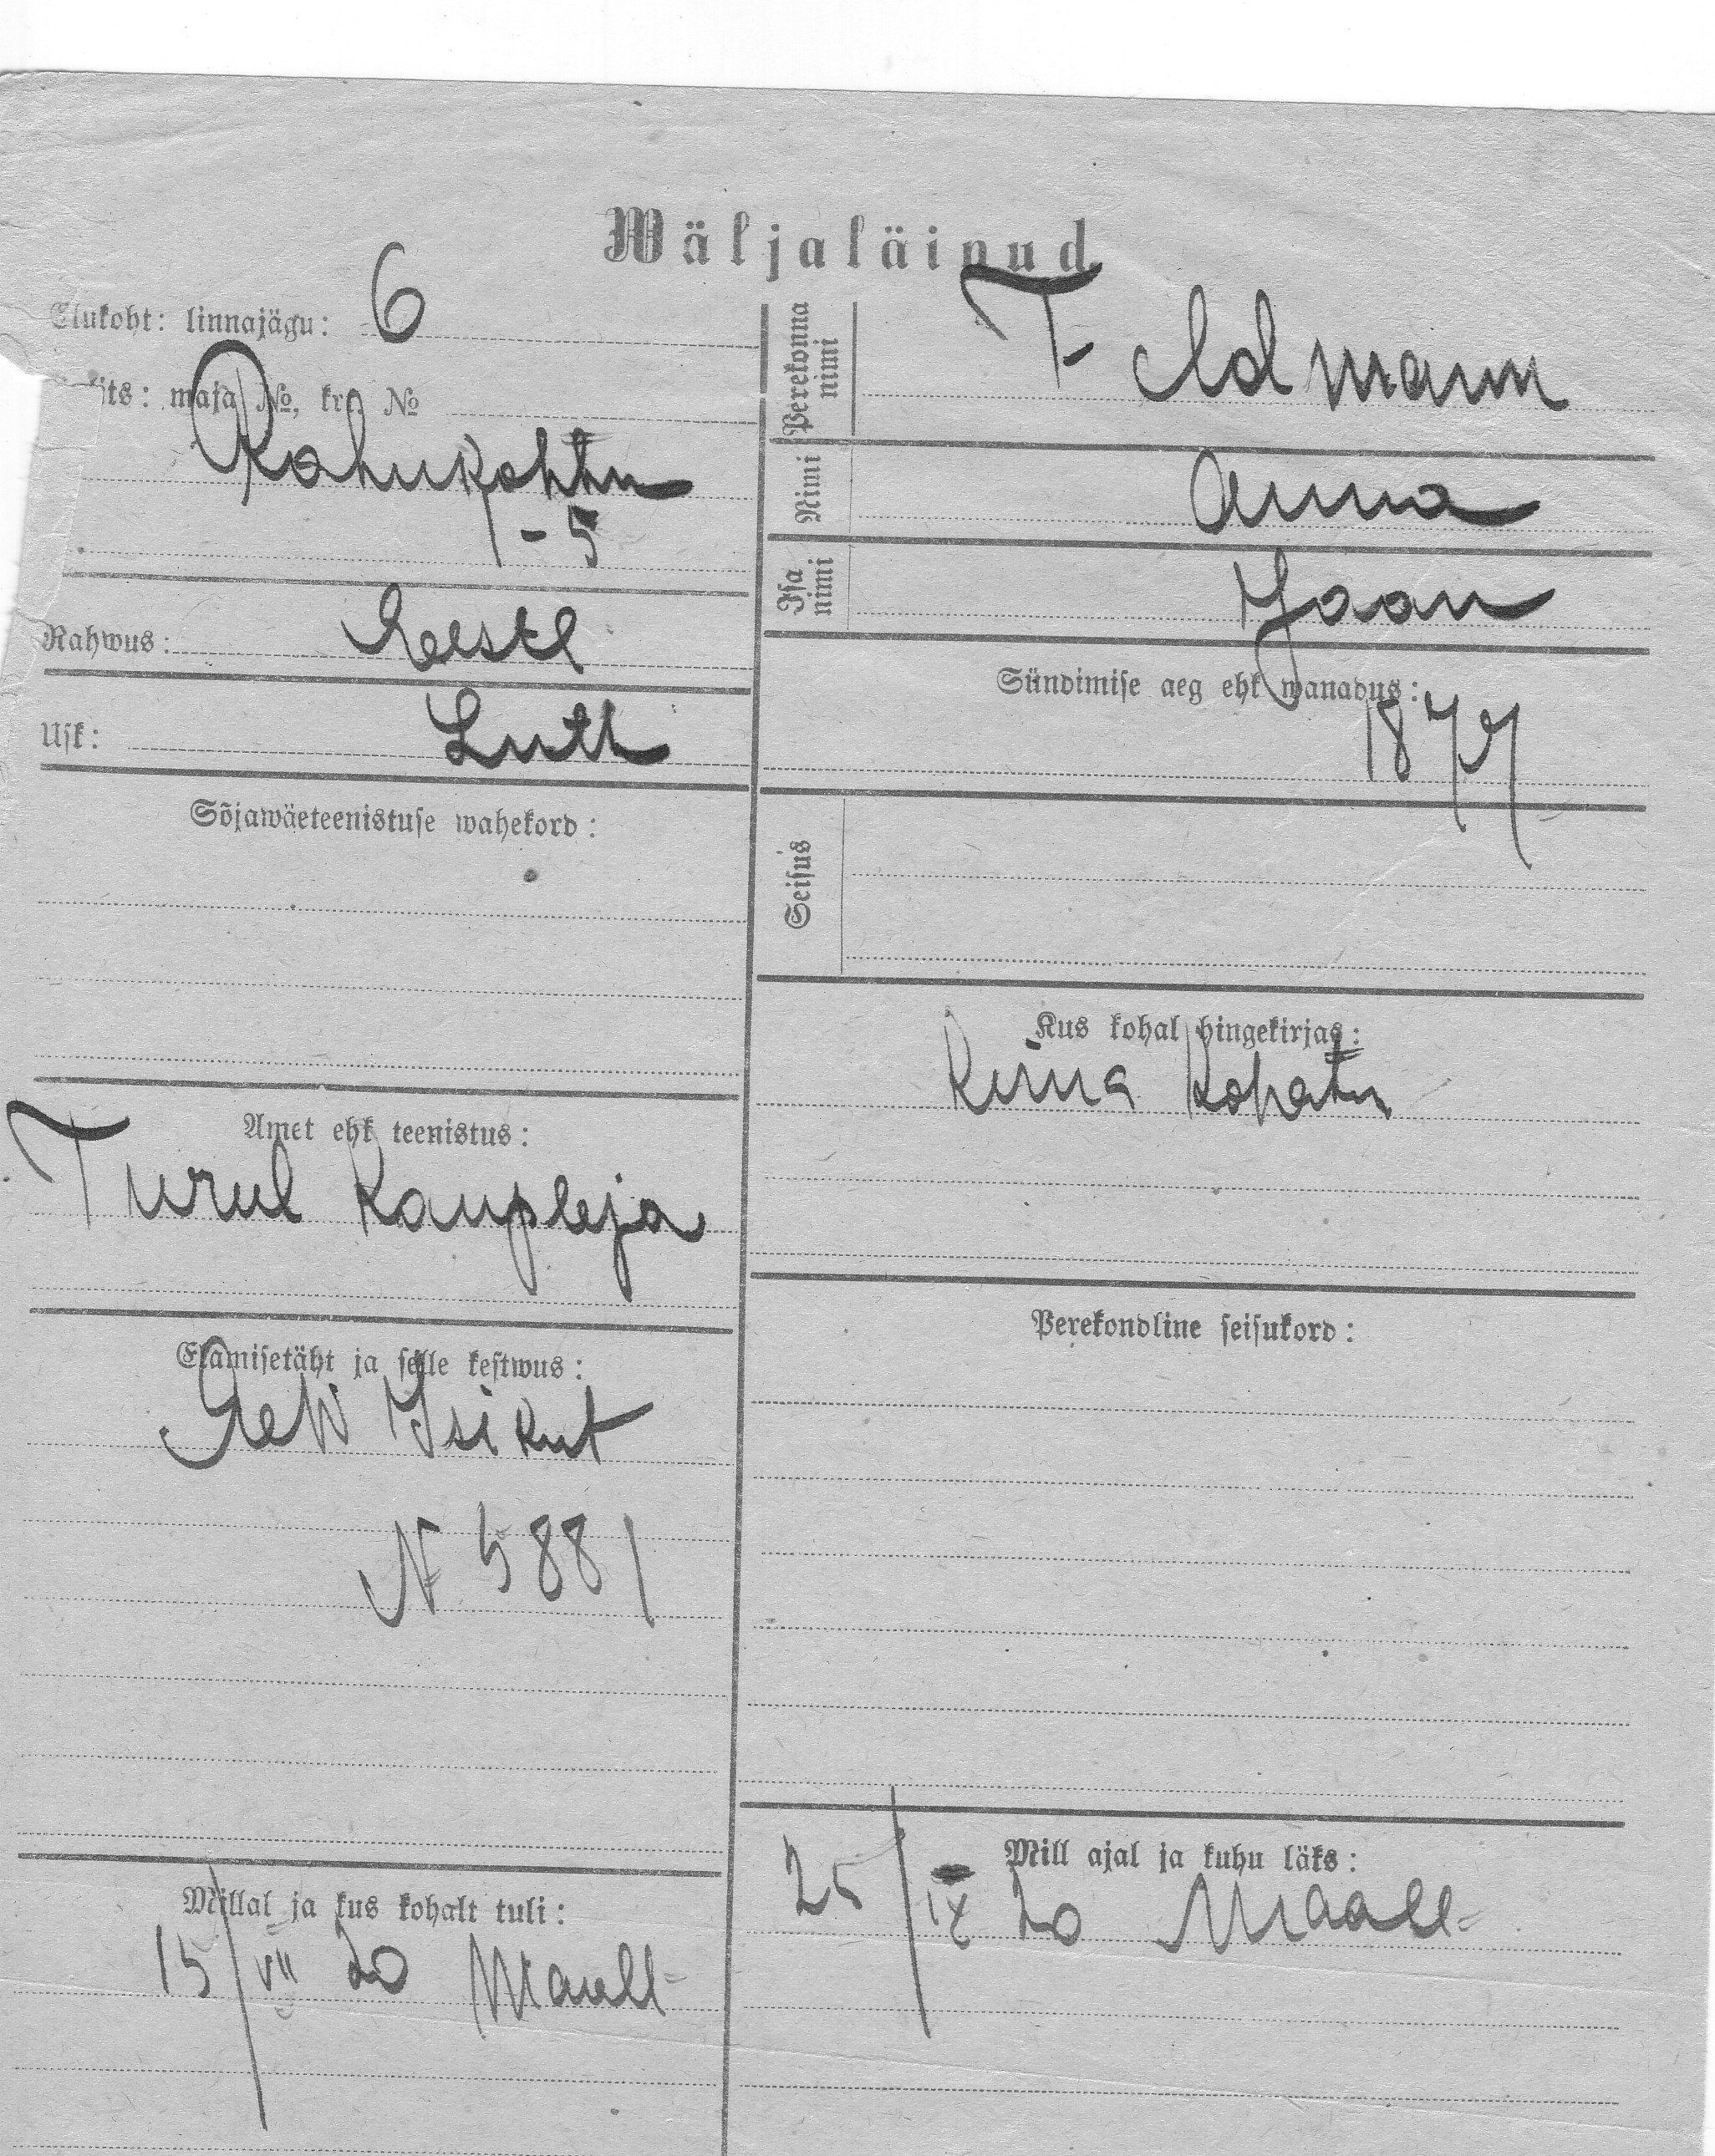 Wäljaläinud
Elukoht: linnajägu: 6
maja №, krt. №
Rahukohtu
1 - 5
Rahwus: Eesti
Usk: Luth
Sõjawäeteenistuse wahekord:
Amet ehk teenistus:
Turul Kaupleja
Elamisetäht ja selle kestwus:
Isikut
N 5881
Millal ja kus kohalt tuli:
15/VII 20 Maalt
Perekonna nimi
Feldmann
Nimi Anna
Isa nimi Jaan
Sündimise aeg ehk wanadus:
1877
Seisus
Kus kohal hingekirjas:
Perekondline seisukord:
Mill ajal ja kuhu läks:
25/IX 20 Maale